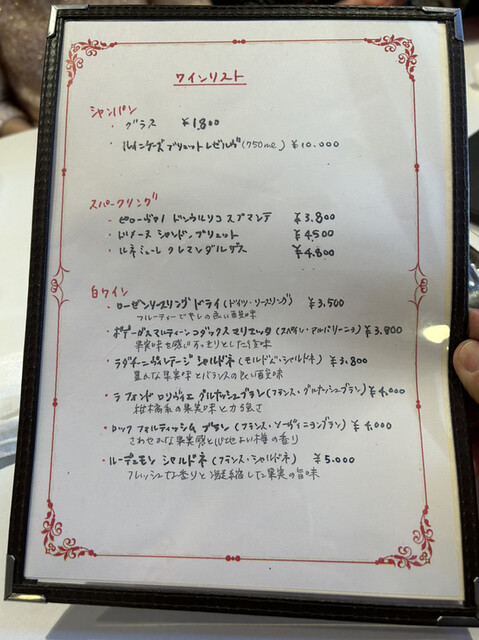 ワインリスト
シャンパン
・グラス ¥1,800
・ルイニケーズ ブリュット レゼルヴ(750ml) ¥10,000
スパークリング
・ピローヴァノ ドンウルリコ スプマンテ ¥3,800
・ドメーヌ シャンドン ブリュット ¥4,500
・ルネミューレ クレマンダルザス ¥4,800
白ワイン
・ローゼンリースリング ドライ(ドイツ・リースリング) ¥3,500
フルーティーでキレの良い酸味
・ボデーガスマルティーンコダックス マリエッタ(スペイン・アルバリーニョ) ¥3,800
果実味を感じすっきりとした後味
・ラダチーニヴィンテージ シャルドネ(モルドバ・シャルドネ) ¥3,800
豊かな果実味とバランスの良い酸味
・ラフォンド ロリヴィエ グルナッシュブラン(フランス・グルナッシュブラン) ¥4,000
柑橘系の果実味と力強さ
・ロック フォルティッシム ブラン(フランス・ソーヴィニヨンブラン) ¥4,000
さわやかな果実感と心地よい樽の香り
・ルーデュモン シャルドネ(フランス・シャルドネ) ¥5,000
フレッシュな香りと凝縮した果実の旨味